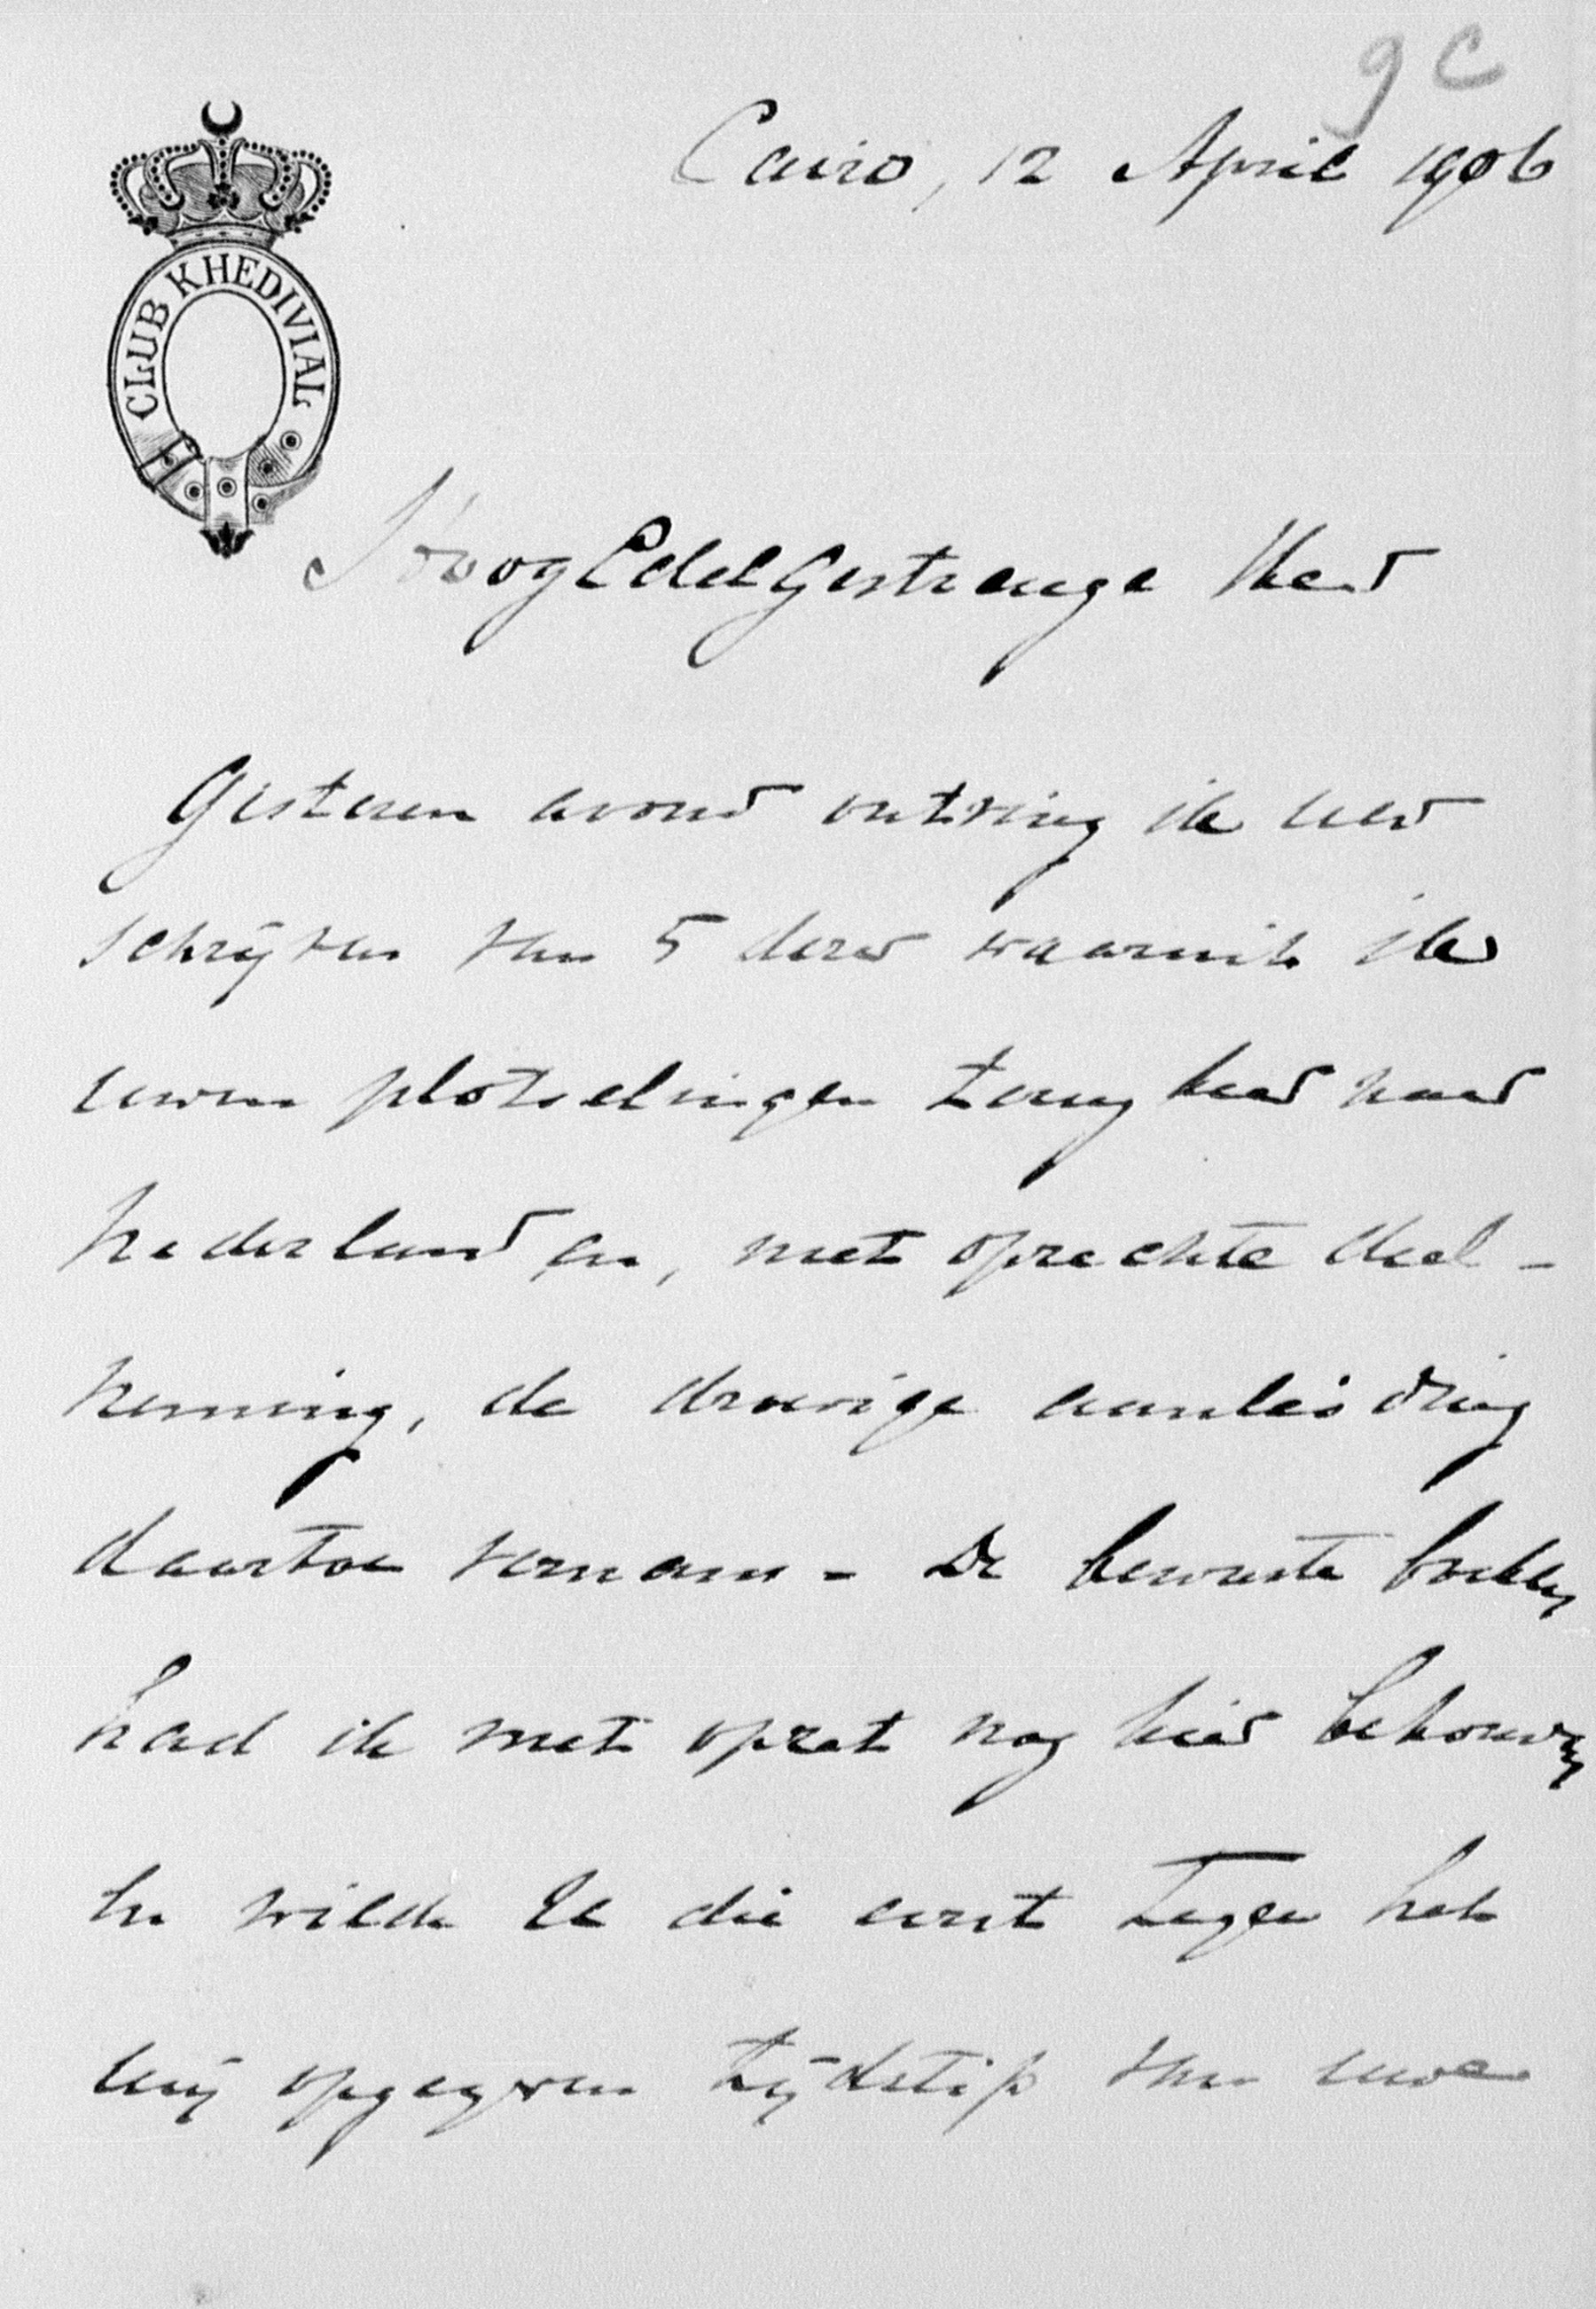 9 C
Cairo, 12 April 1906
CLUB KHEDIVIAL
HoogEdelGestrenge Heer
Gisteren avond ontving ik uw
schrijven van 5 dezer waaruit ik
uwen plotselingen terugkeer naar
Nederland en, met oprechte deel-
neming, de droevige aanleiding
daartoe vernam - De bewuste boeken
had ik met opzet nog hier behouden
en wilde ik die eerst tegen het
mij opgegeven tijdstip van uwe